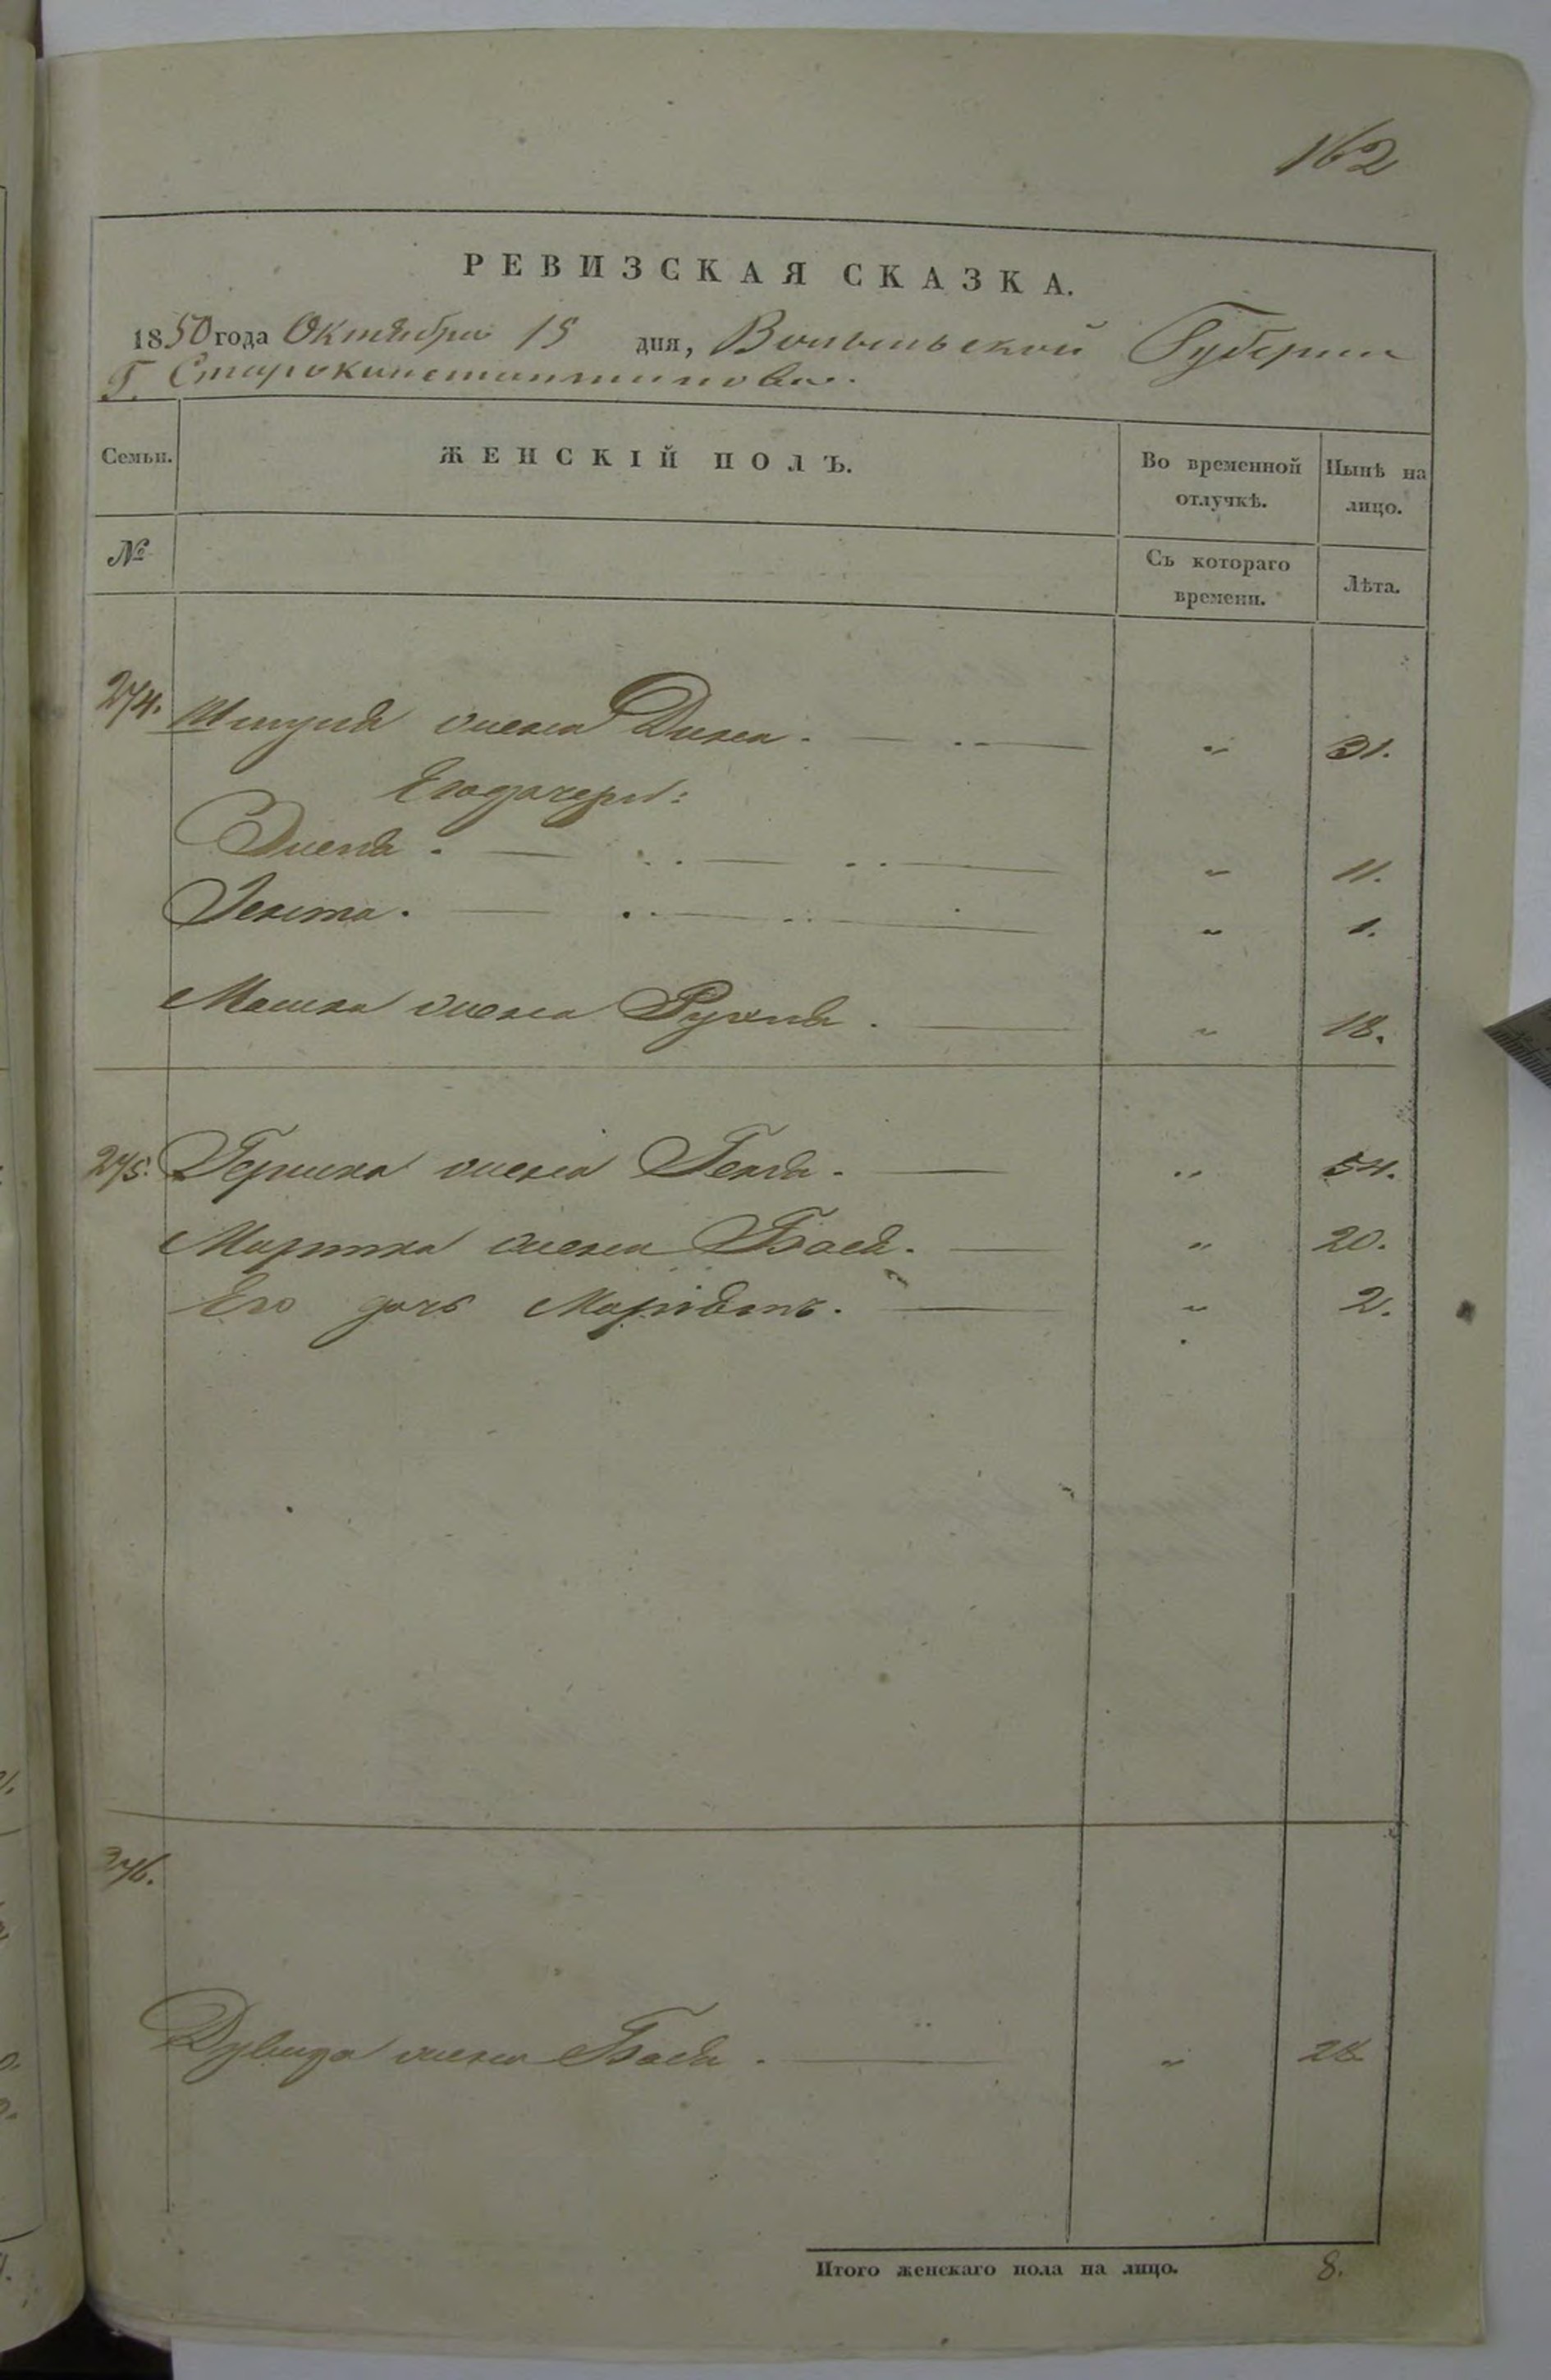 162
РЕВИЗСКАЯ СКАЗКА.
1850 года Октября 15 дня, Волыньской Губернии
Г. Староконстантинова.
Семьи. ЖЕНСКІЙ ПОЛЪ. Во временной отлучкѣ. Нынѣ на лицо.
№ Съ котораго времени. Лѣта.
274. жена " 31.
Его дочери:
" 11.
" 1.
Мошка жена Рухля. " 18.
275. Гершка жена Генья. " 54.
Мортка жена Бася. " 20.
Его дочь Маріямъ. " 2.
276.
Дувида жена Бася. " 28
Итого женскаго пола на лицо. 8.